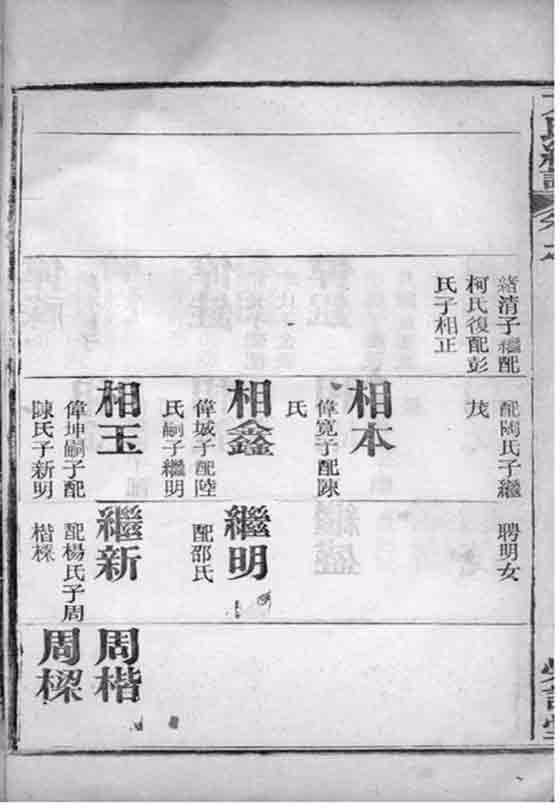 緒清子繼配
柯氏復配彭
氏子相正
配陶氏子繼
茂
相本
偉寬子配陳
氏
相鑫
偉城子配陸
氏嗣子繼明
相玉
偉坤嗣子配
陳氏子新明
聘明女
繼明
配邵氏
繼新
配楊氏子周
楷樑
周楷
周樑